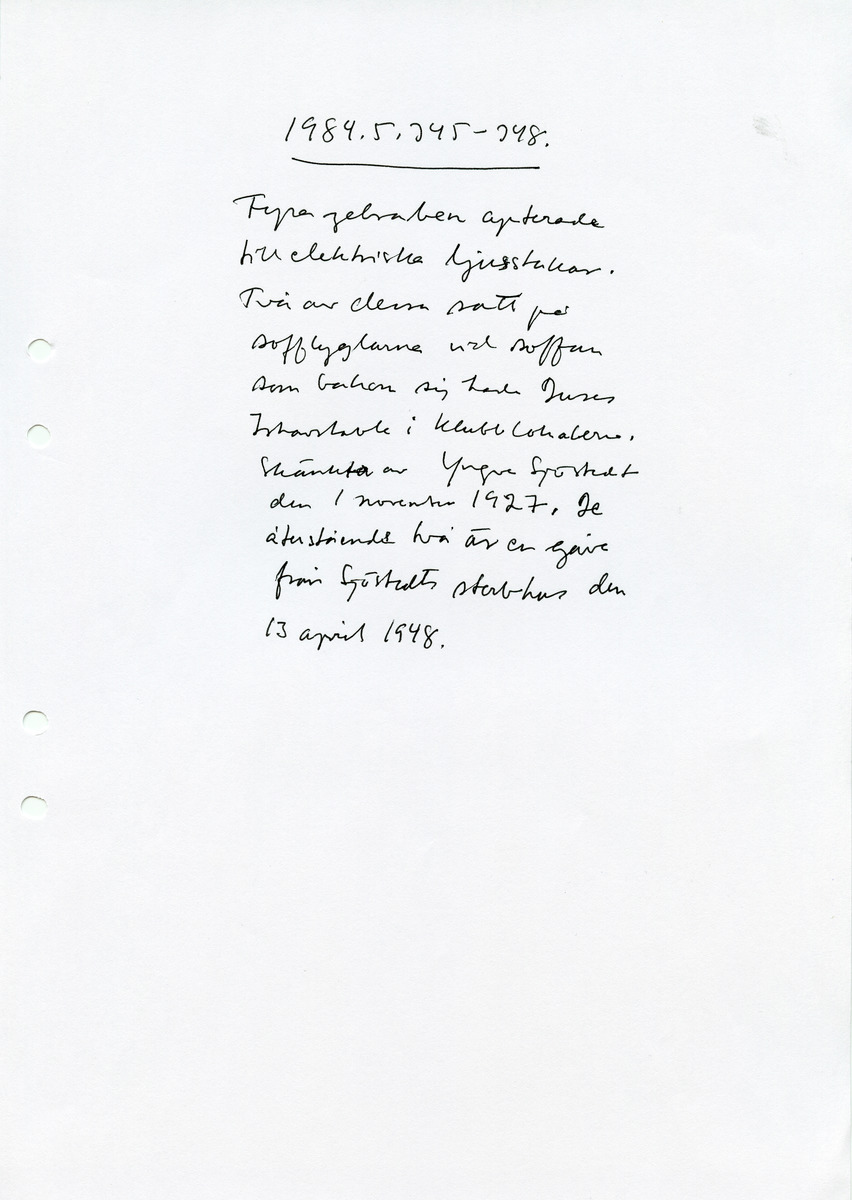 1984.5.345-348.
Fyra zebraben apterade
till elektriska ljusstakar.
Två av dessa satt på
soffflyglarna vid soffan
som bakom sig hade
i klubblokalerna.
Skänkta av Yngve Sjöstedt
den 1 november 1927. De
återstående två är en gåva
från Sjöstedts sterbhus den
13 april 1948.